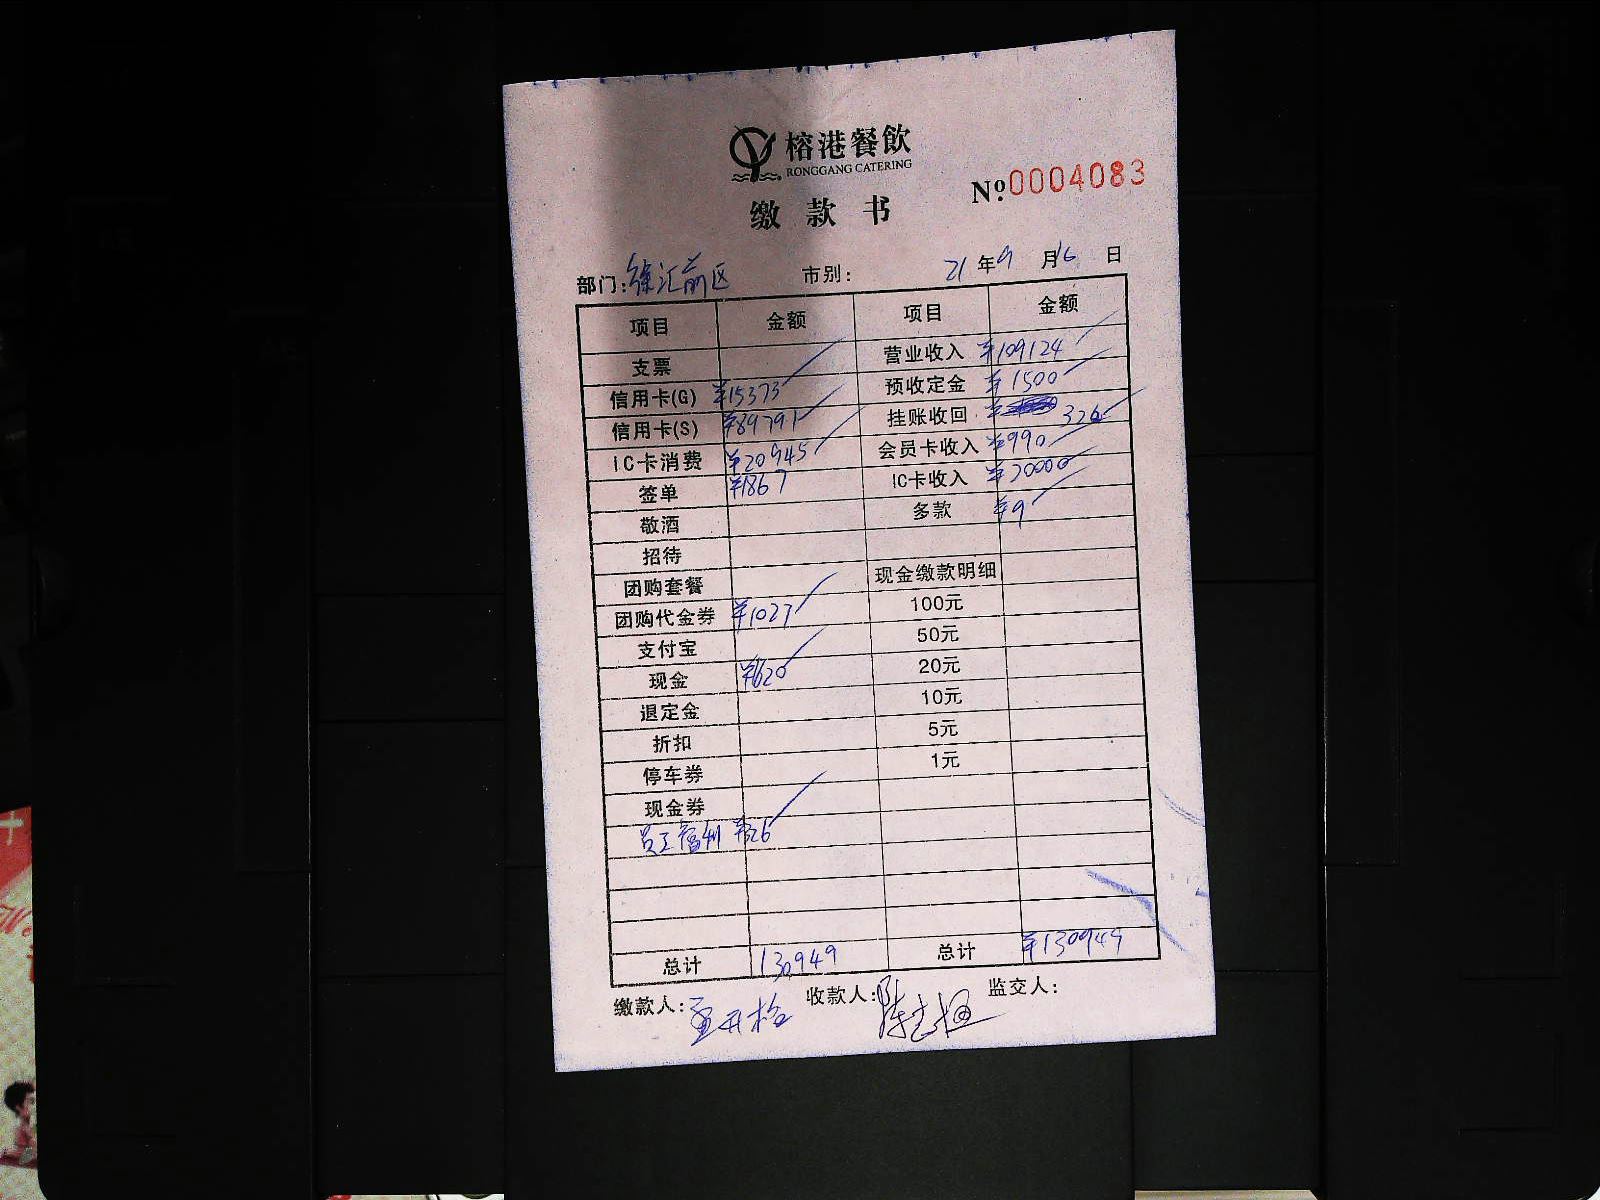 榕港餐飲
RONGGANG CATERING
缴款书 №0004083
部门:徐汇前区 市别: 21年9月16日
项目 金额 项目 金额
支票 营业收入 ¥109124
信用卡(G) ¥15373 预收定金 ¥1500
信用卡(S) ¥89791 挂账收回 ¥ 326
IC卡消费 ¥20945 会员卡收入 ¥990
签单 ¥1867 IC卡收入 ¥20000
敬酒 多款 ¥9
招待
团购套餐 现金缴款明细
团购代金券 ¥1027 100元
支付宝 50元
现金 ¥1620 20元
退定金 10元
折扣 5元
停车券 1元
现金券
员工福利 ¥326
总计 130949 总计 ¥130949
缴款人: 收款人: 监交人: